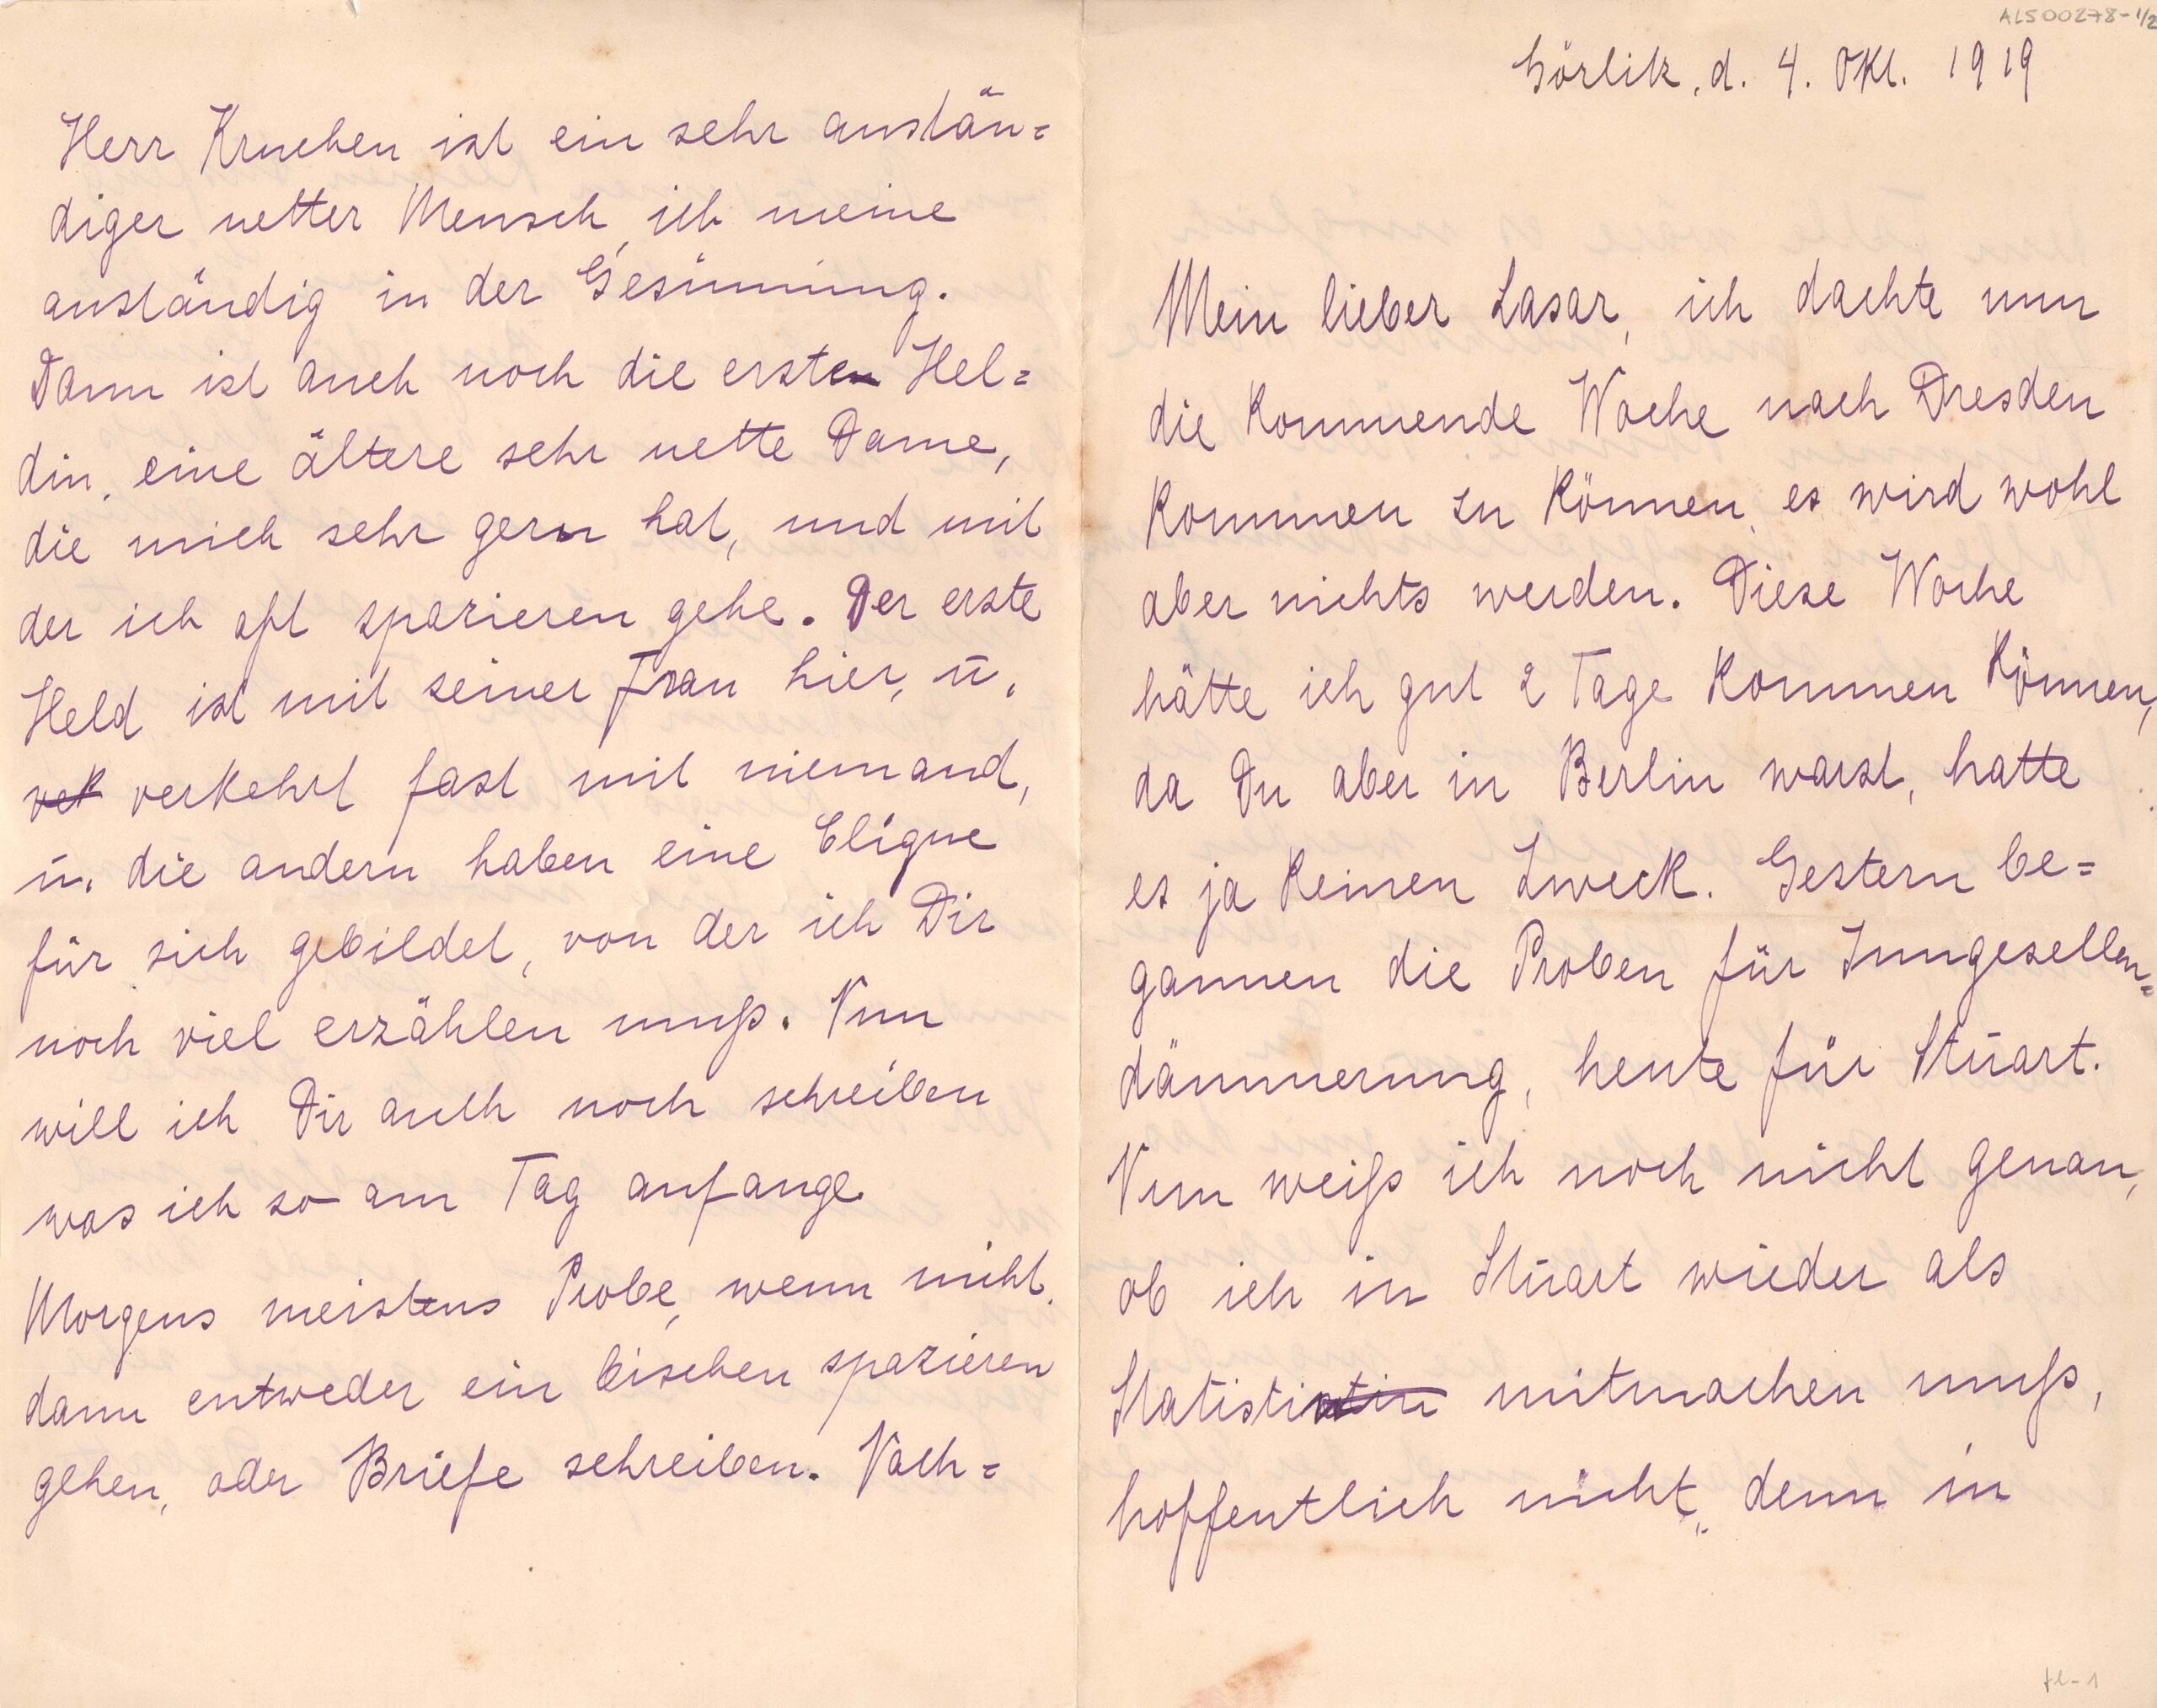 ALS00278-1/2
Görlitz, d. 4. Okt. 1919
Mein lieber Lasar, ich dachte nun
die kommende Woche nach Dresden
kommen zu können, es wird wohl
aber nichts werden. Diese Woche
hätte ich gut 2 Tage kommen können,
da Du aber in Berlin warst, hatte
es ja keinen Zweck. Gestern be=
gannen die Proben für Junggesellen=
dämmerung, heute für Stuart.
Nun weiß ich noch nicht genau,
ob ich in Stuart wieder als
Statisti mitmachen muß,
hoffentlich nicht, denn in
Herr Kruchen ist ein sehr anstän=
diger netter Mensch, ich meine
anständig in der Gesinnung.
Dann ist auch noch die erste Hel=
din, eine ältere sehr nette Dame,
die mich sehr gern hat, und mit
der ich oft spazieren gehe. Der erste
Held ist mit seiner Frau hier, u.
vek verkehrt fast mit niemand,
u. die andern haben eine Clique
für sich gebildet, von der ich Dir
noch viel erzählen muß. Nun
will ich Dir auch noch schreiben
was ich so am Tag anfange.
Morgens meistens Probe, wenn nicht,
dann entweder ein bischen spazieren
gehen, oder Briefe schreiben. Nach=